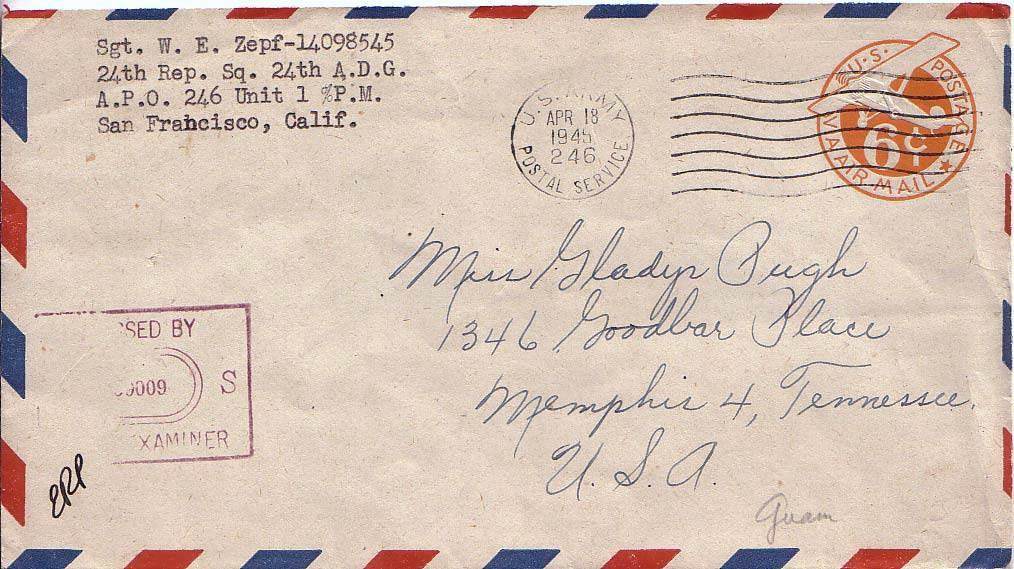 Sgt. W. E. Zepf-14098545
24th Rep. Sq. 24th A.D.G.
A.P.O. 246 Unit 1 %P.M.
San Francisco, Calif.
U.S. ARMY
APR 18
1945
246
POSTAL SERVICE
U.S. POSTAGE
6¢
VIA AIR MAIL
Miss Gladys Pugh
1346 Goodbar Place
Memphis 4, Tennessee.
U.S.A.
SSED BY
0009 S
XAMINER
Guam